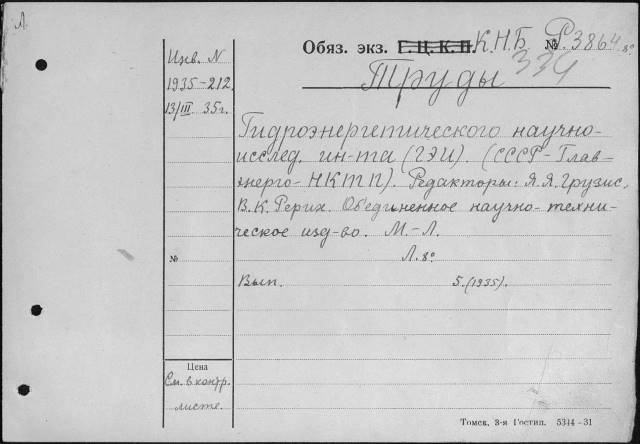 Л.
Обяз. экз. Г.Ц.К.П. К.Н.Б. № Р3864 8°
334
Инв. N
1935-212
13/III 35г.
Труды
Гидроэнергетического научно-
исслед. ин-та (ГЭИ). (СССР-Глав-
энерго-НКТП). Редакторы: Я.Я.Грузис,
В.К.Рерих. Объединенное научно-техни-
ческое изд-во. М.-Л.
№ Л. 8°
Вып. 5. (1935).
Цена
См. в контр.
листе.
Томск, 3-я Гостип. 5344-31